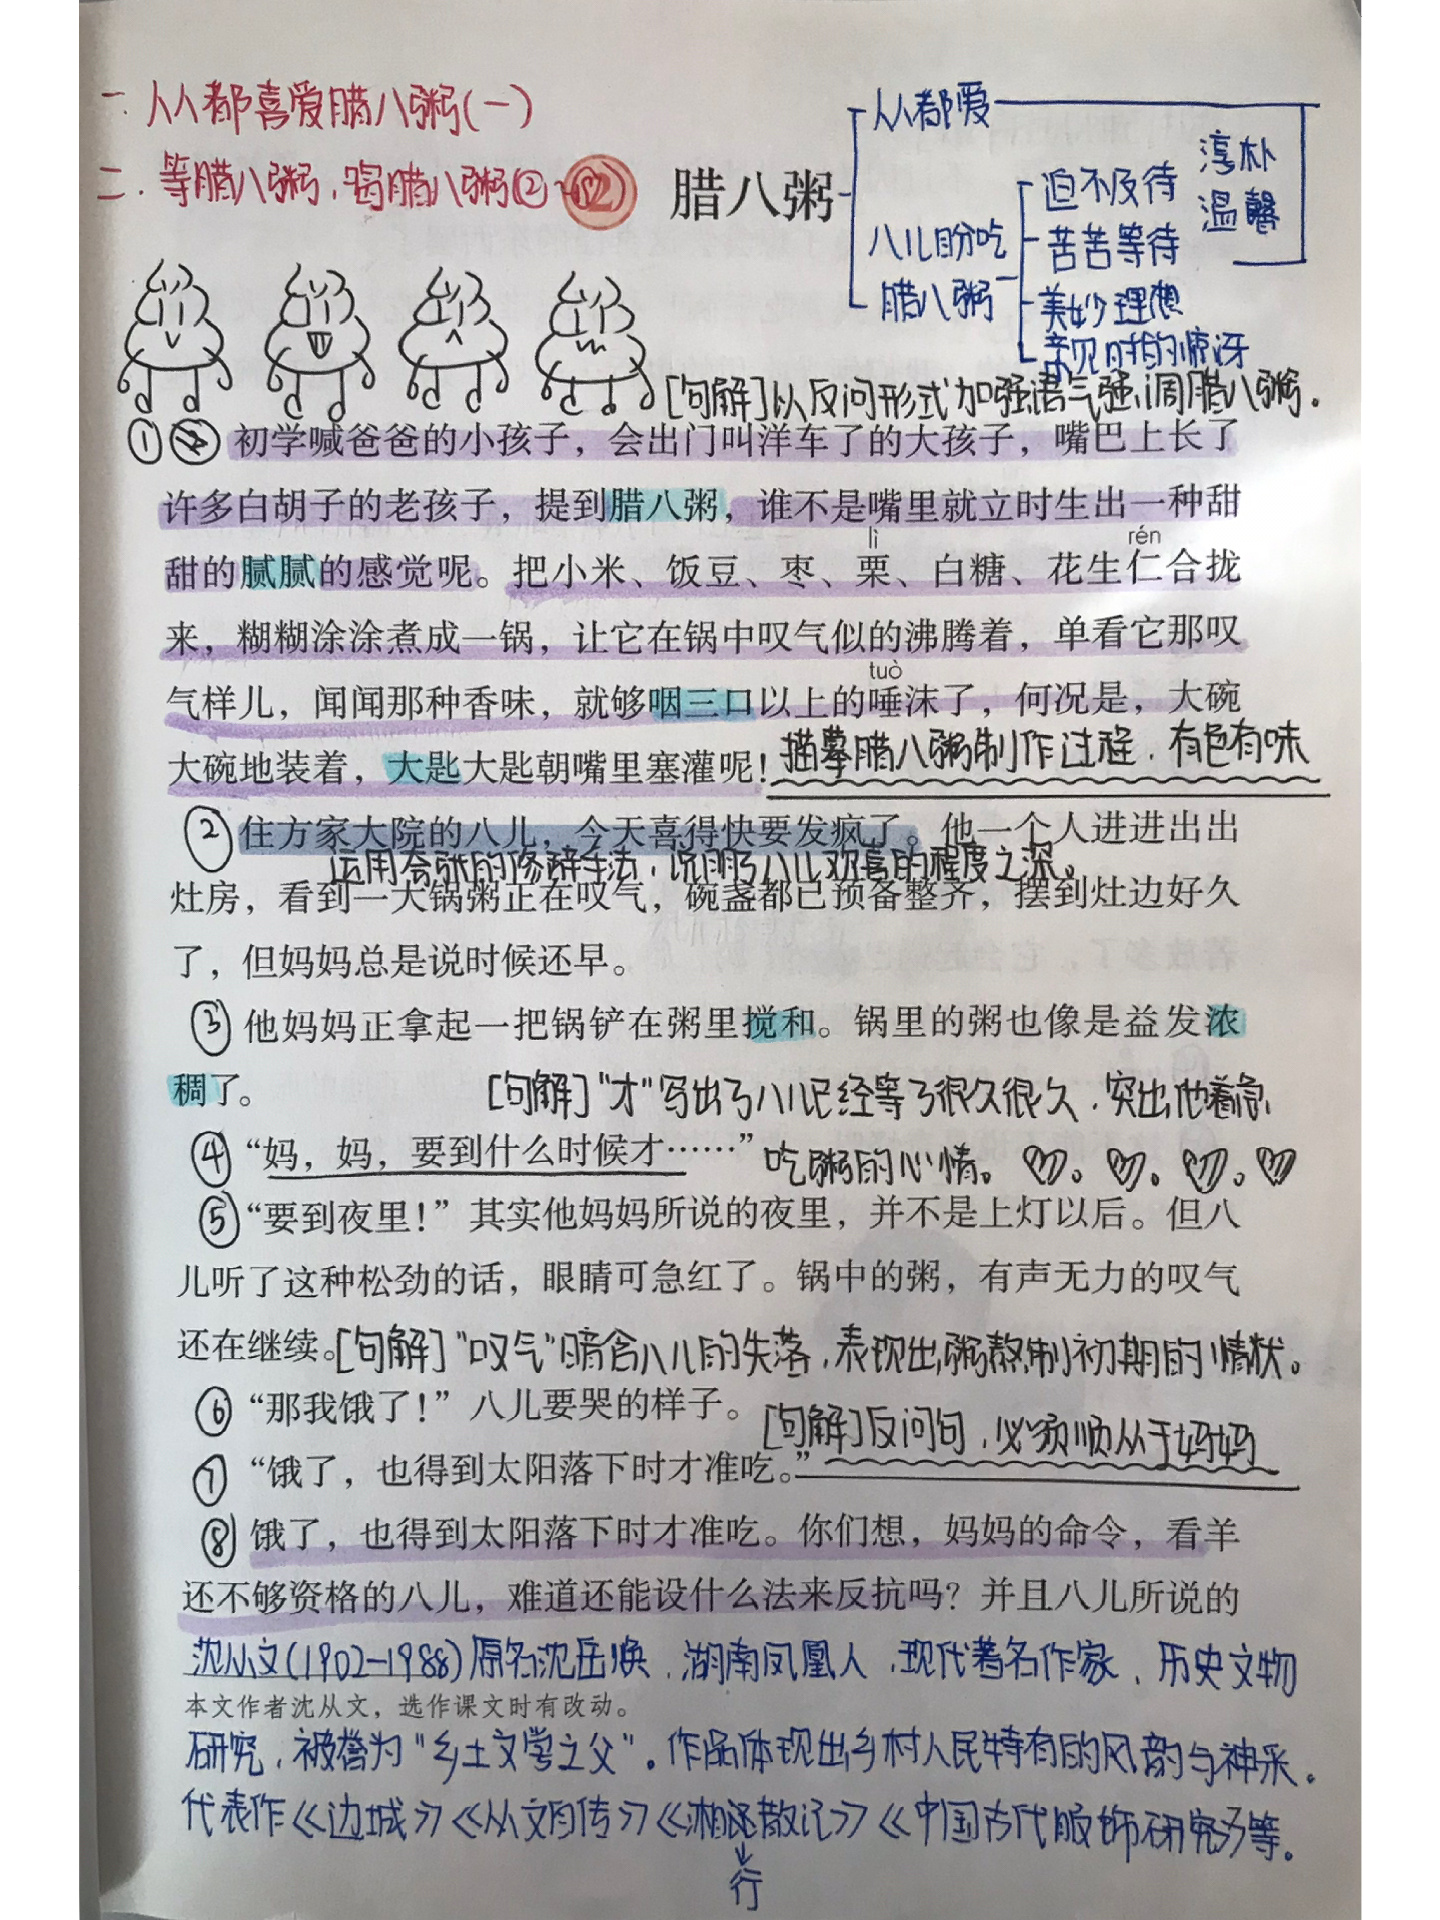 一.人人都喜爱腊八粥(一)
二.等腊八粥，喝腊八粥(②~
2
腊八粥
人人都爱
八儿盼吃
腊八粥
迫不及待
苦苦等待
美妙理想
亲见时的惊讶
淳朴
温馨
[句解]以反问形式加强语气强调腊八粥。
① 初学喊爸爸的小孩子，会出门叫洋车了的大孩子，嘴巴上长了
许多白胡子的老孩子，提到腊八粥，谁不是嘴里就立时生出一种甜
lì rén
甜的腻腻的感觉呢。把小米、饭豆、枣、栗、白糖、花生仁合拢
来，糊糊涂涂煮成一锅，让它在锅中叹气似的沸腾着，单看它那叹
tuò
气样儿，闻闻那种香味，就够咽三口以上的唾沫了，何况是，大碗
大碗地装着，大匙大匙朝嘴里塞灌呢！描摹腊八粥制作过程，有色有味
② 住方家大院的八儿，今天喜得快要发疯了。他一个人进进出出
运用夸张的修辞手法，说明了八儿欢喜的程度之深。
灶房，看到一大锅粥正在叹气，碗盏都已预备整齐，摆到灶边好久
了，但妈妈总是说时候还早。
③ 他妈妈正拿起一把锅铲在粥里搅和。锅里的粥也像是益发浓
稠了。 [句解]“才”写出了八儿已经等了很久很久，突出他着急
④ “妈，妈，要到什么时候才……” 吃粥的心情。
⑤ “要到夜里！”其实他妈妈所说的夜里，并不是上灯以后。但八
儿听了这种松劲的话，眼睛可急红了。锅中的粥，有声无力的叹气
还在继续。[句解]“叹气”暗含八儿的失落，表现出粥熬制初期的情状。
⑥ “那我饿了！”八儿要哭的样子。 [句解]反问句，必须顺从于妈妈
⑦ “饿了，也得到太阳落下时才准吃。”
⑧ 饿了，也得到太阳落下时才准吃。你们想，妈妈的命令，看羊
还不够资格的八儿，难道还能设什么法来反抗吗？并且八儿所说的
沈从文(1902-1988)原名沈岳焕，湖南凤凰人，现代著名作家、历史文物
本文作者沈从文，选作课文时有改动。
研究，被誉为“乡土文学之父”。作品体现出乡村人民特有的风韵与神采。
代表作《边城》《从文自传》《湘西散记》《中国古代服饰研究》等。
行